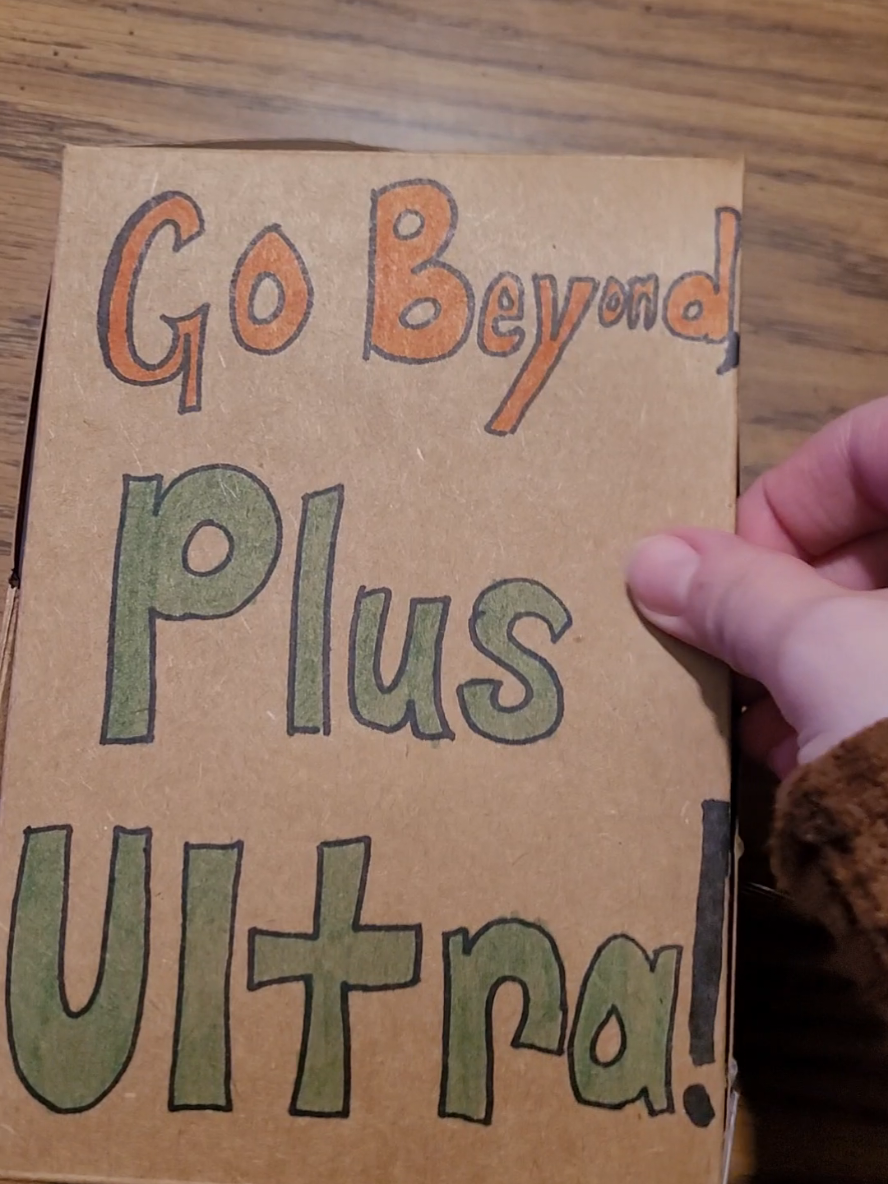 Go Beyond,
Plus
Ultra!